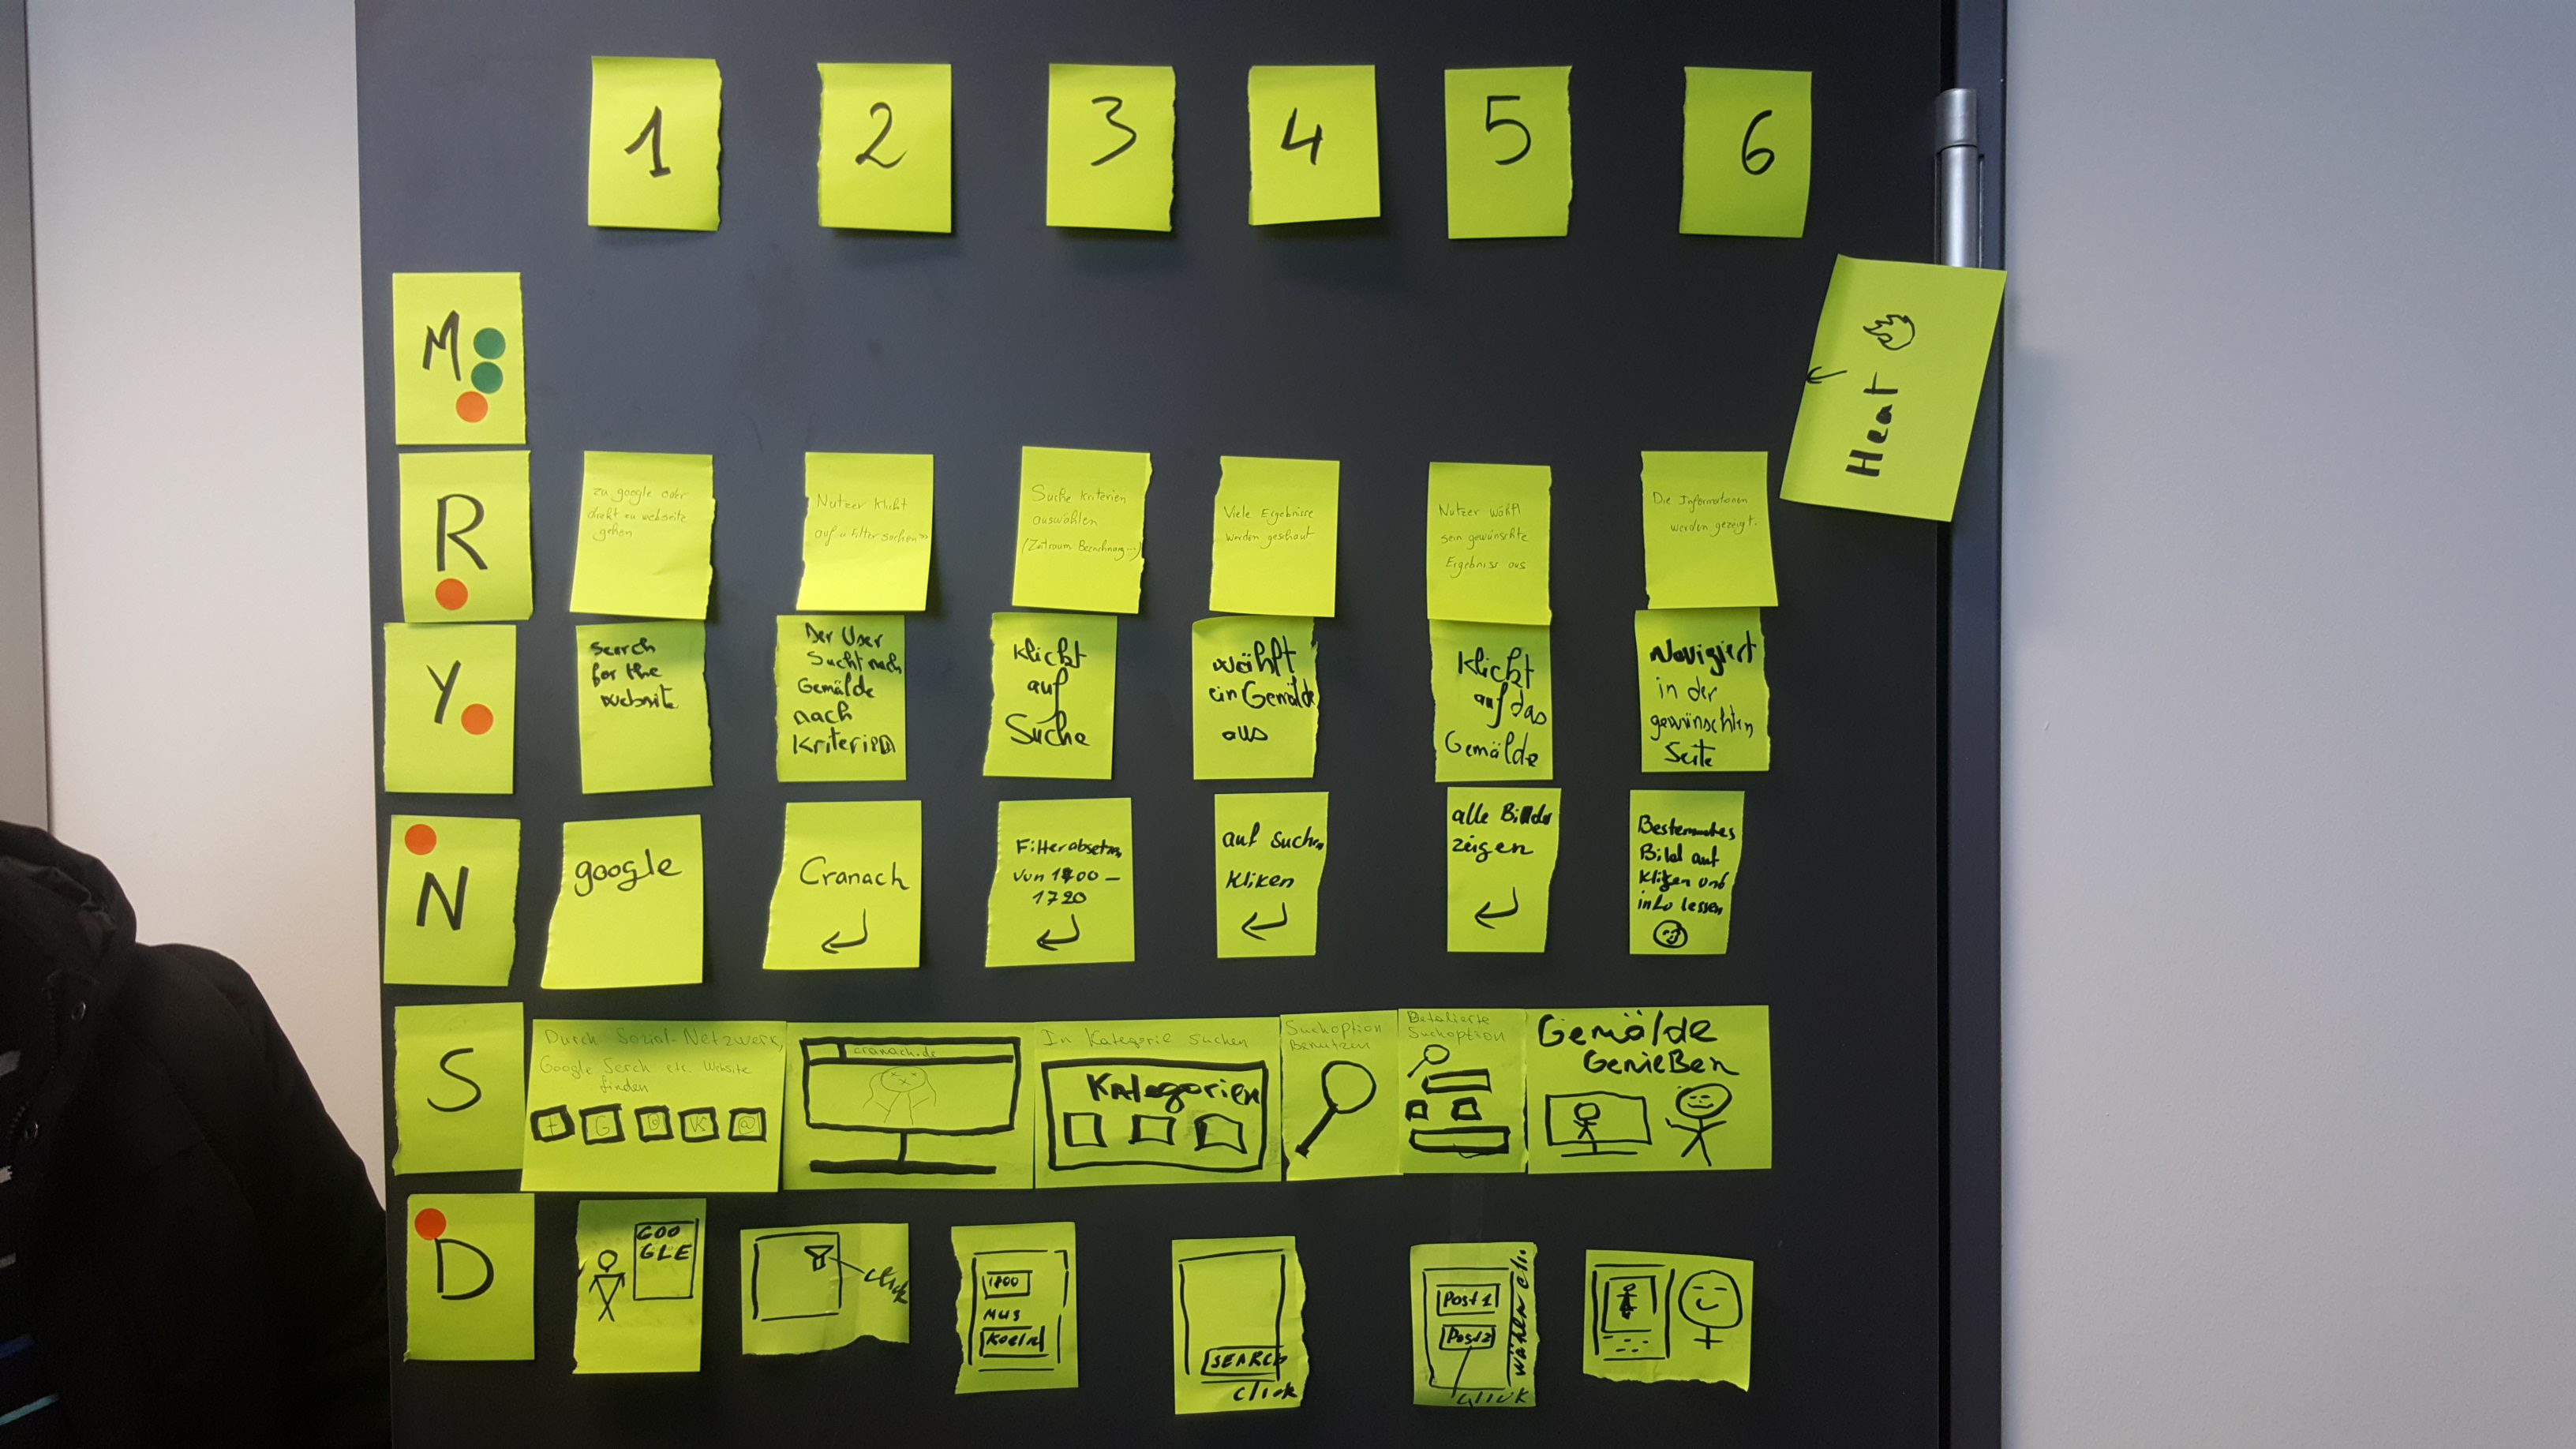 1
2
3
4
5
6
Heat
M
R
zu google oder
direkt zu webseite
gehen
Nutzer klickt
auf « Filter suchen »
Suche kriterien
auswählen
(Zeitraum Bezeichnung...)
Viele Ergebnisse
werden geschaut
Nutzer wählt
sein gewünschte
Ergebnisse aus
Die Informationen
werden gezeigt.
Y
Search
for the
website
Der User
Sucht nach
Gemälde
nach
Kriterien
Klickt
auf
Suche
wählt
ein Gemälde
aus
Klickt
auf das
Gemälde
Navigiert
in der
gewünschten
Seite
N
google
Cranach
Filter absetzen
von 1400 –
1720
auf suchen
kliken
alle Bilder
zeigen
Bestemmtes
Bild auf
kliken und
info lessen
S
Durch Sozial-Netzwerk,
Google Serch etc. Website
finden
f G K @
cranach.de
In Kategorie suchen
Kategorien
Suchoption
Benutzen
Detalierte
Suchoption
Gemälde
Genießen
D
GOO
GLE
click
1800
MUS
Koeln
SEARCH
click
Post 1
Post 2
click
wählen